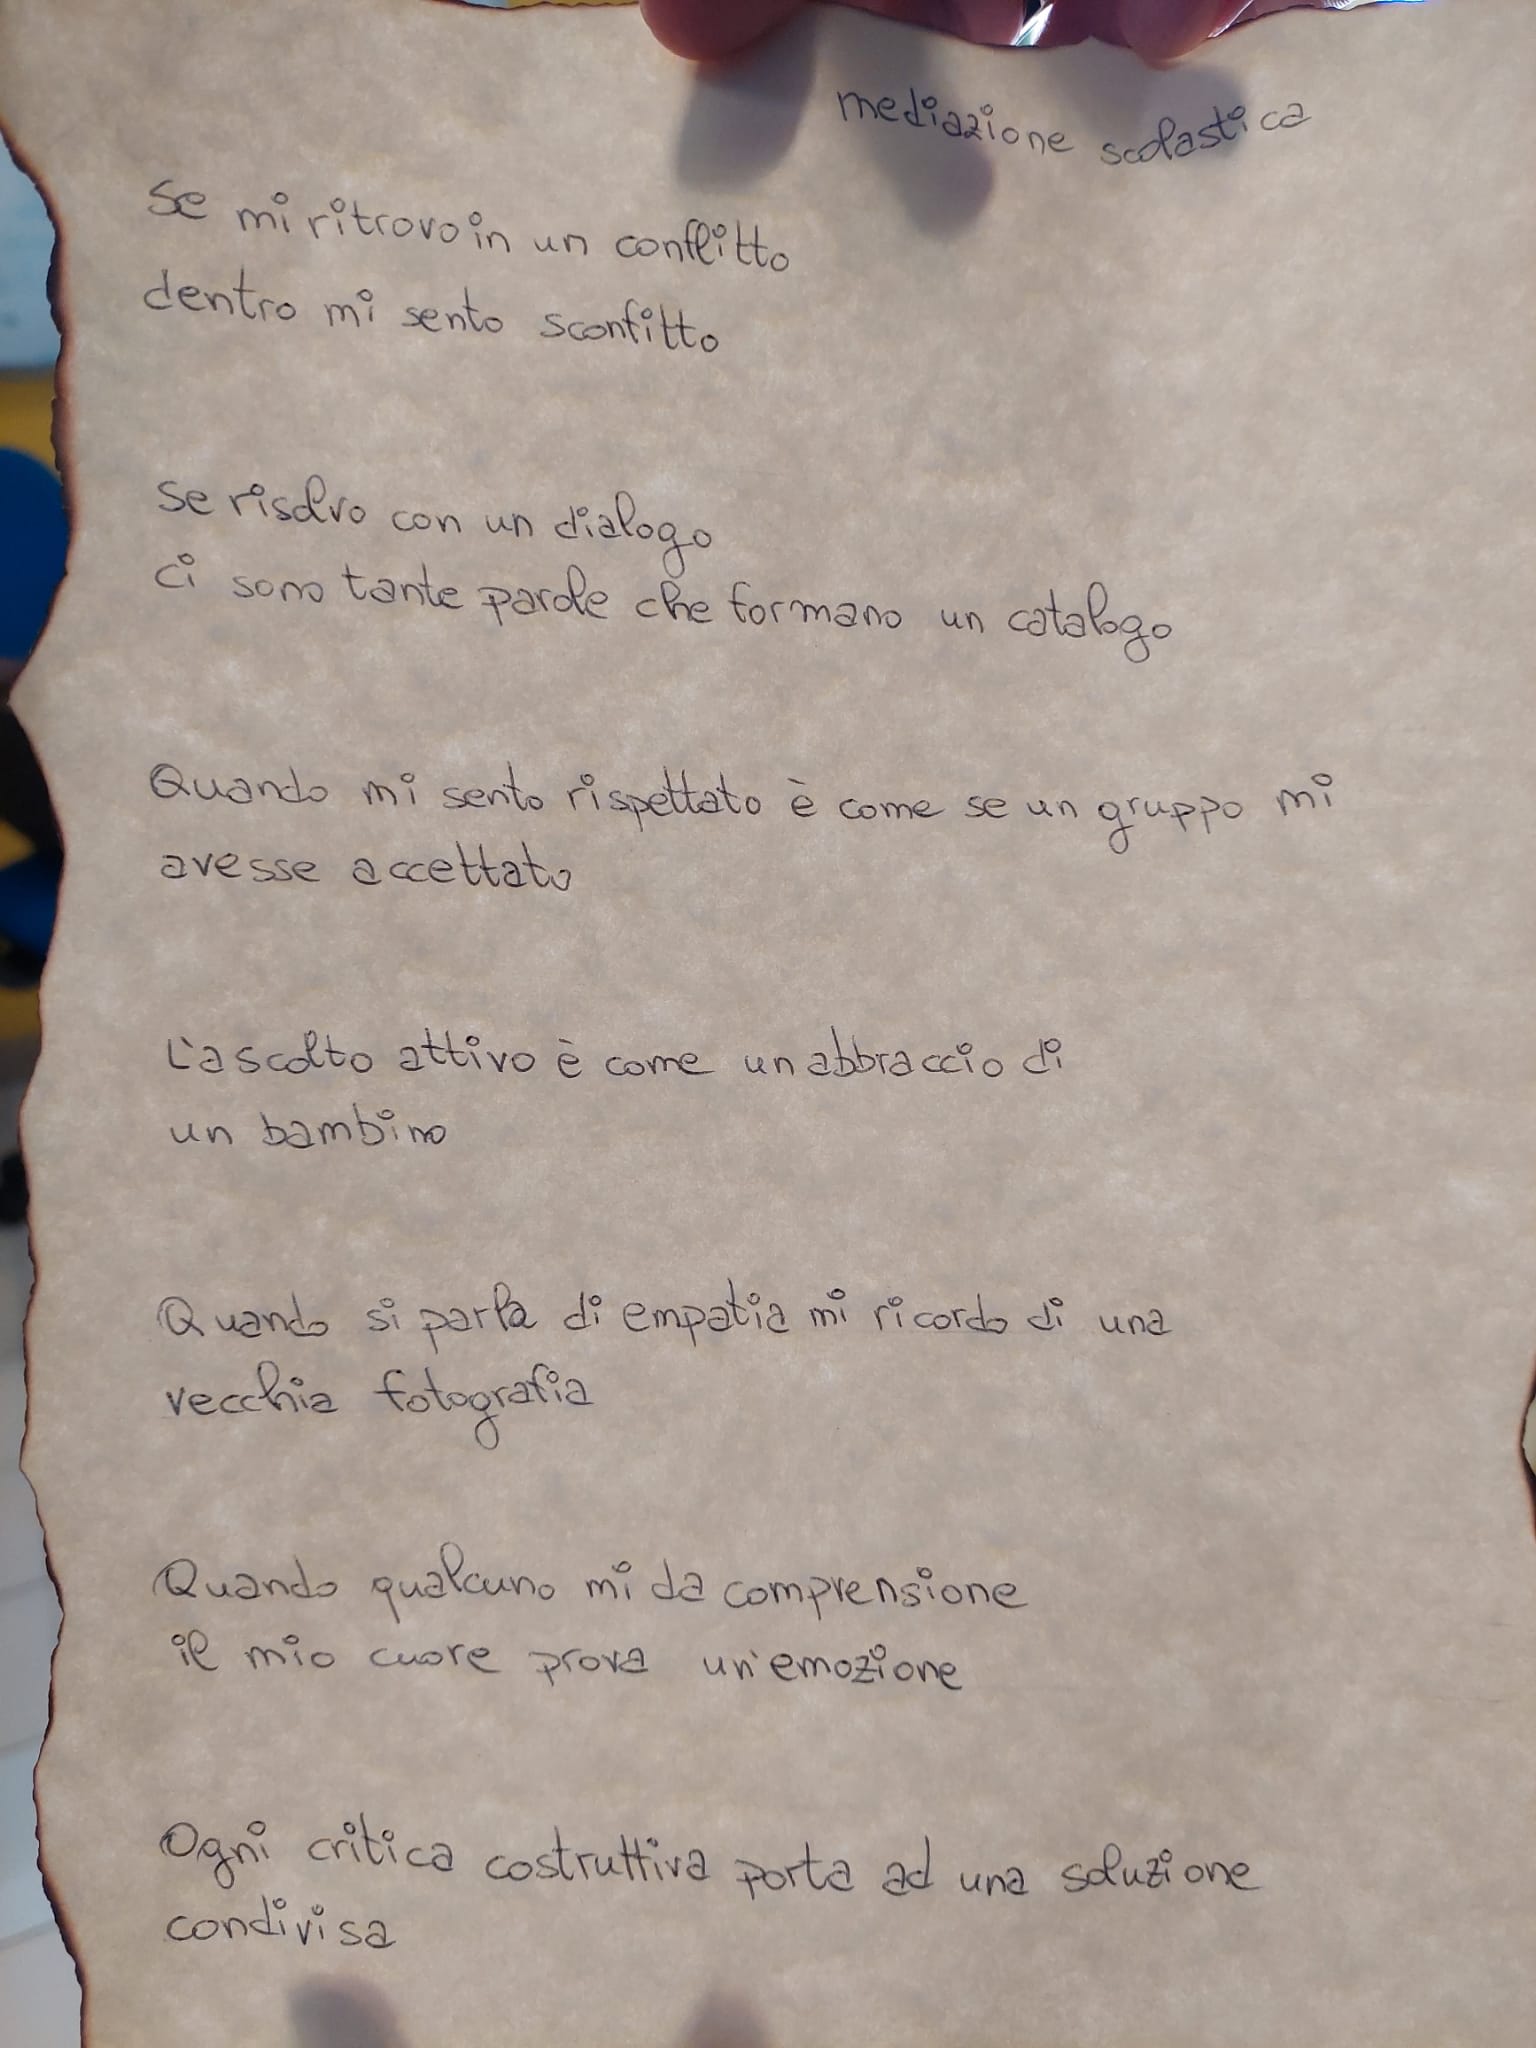 mediazione scolastica
Se mi ritrovo in un conflitto
dentro mi sento sconfitto
Se risolvo con un dialogo
ci sono tante parole che formano un catalogo
Quando mi sento rispettato è come se un gruppo mi
avesse accettato
L'ascolto attivo è come un abbraccio di
un bambino
Quando si parla di empatia mi ricordo di una
vecchia fotografia
Quando qualcuno mi da comprensione
il mio cuore prova un'emozione
Ogni critica costruttiva porta ad una soluzione
condivisa